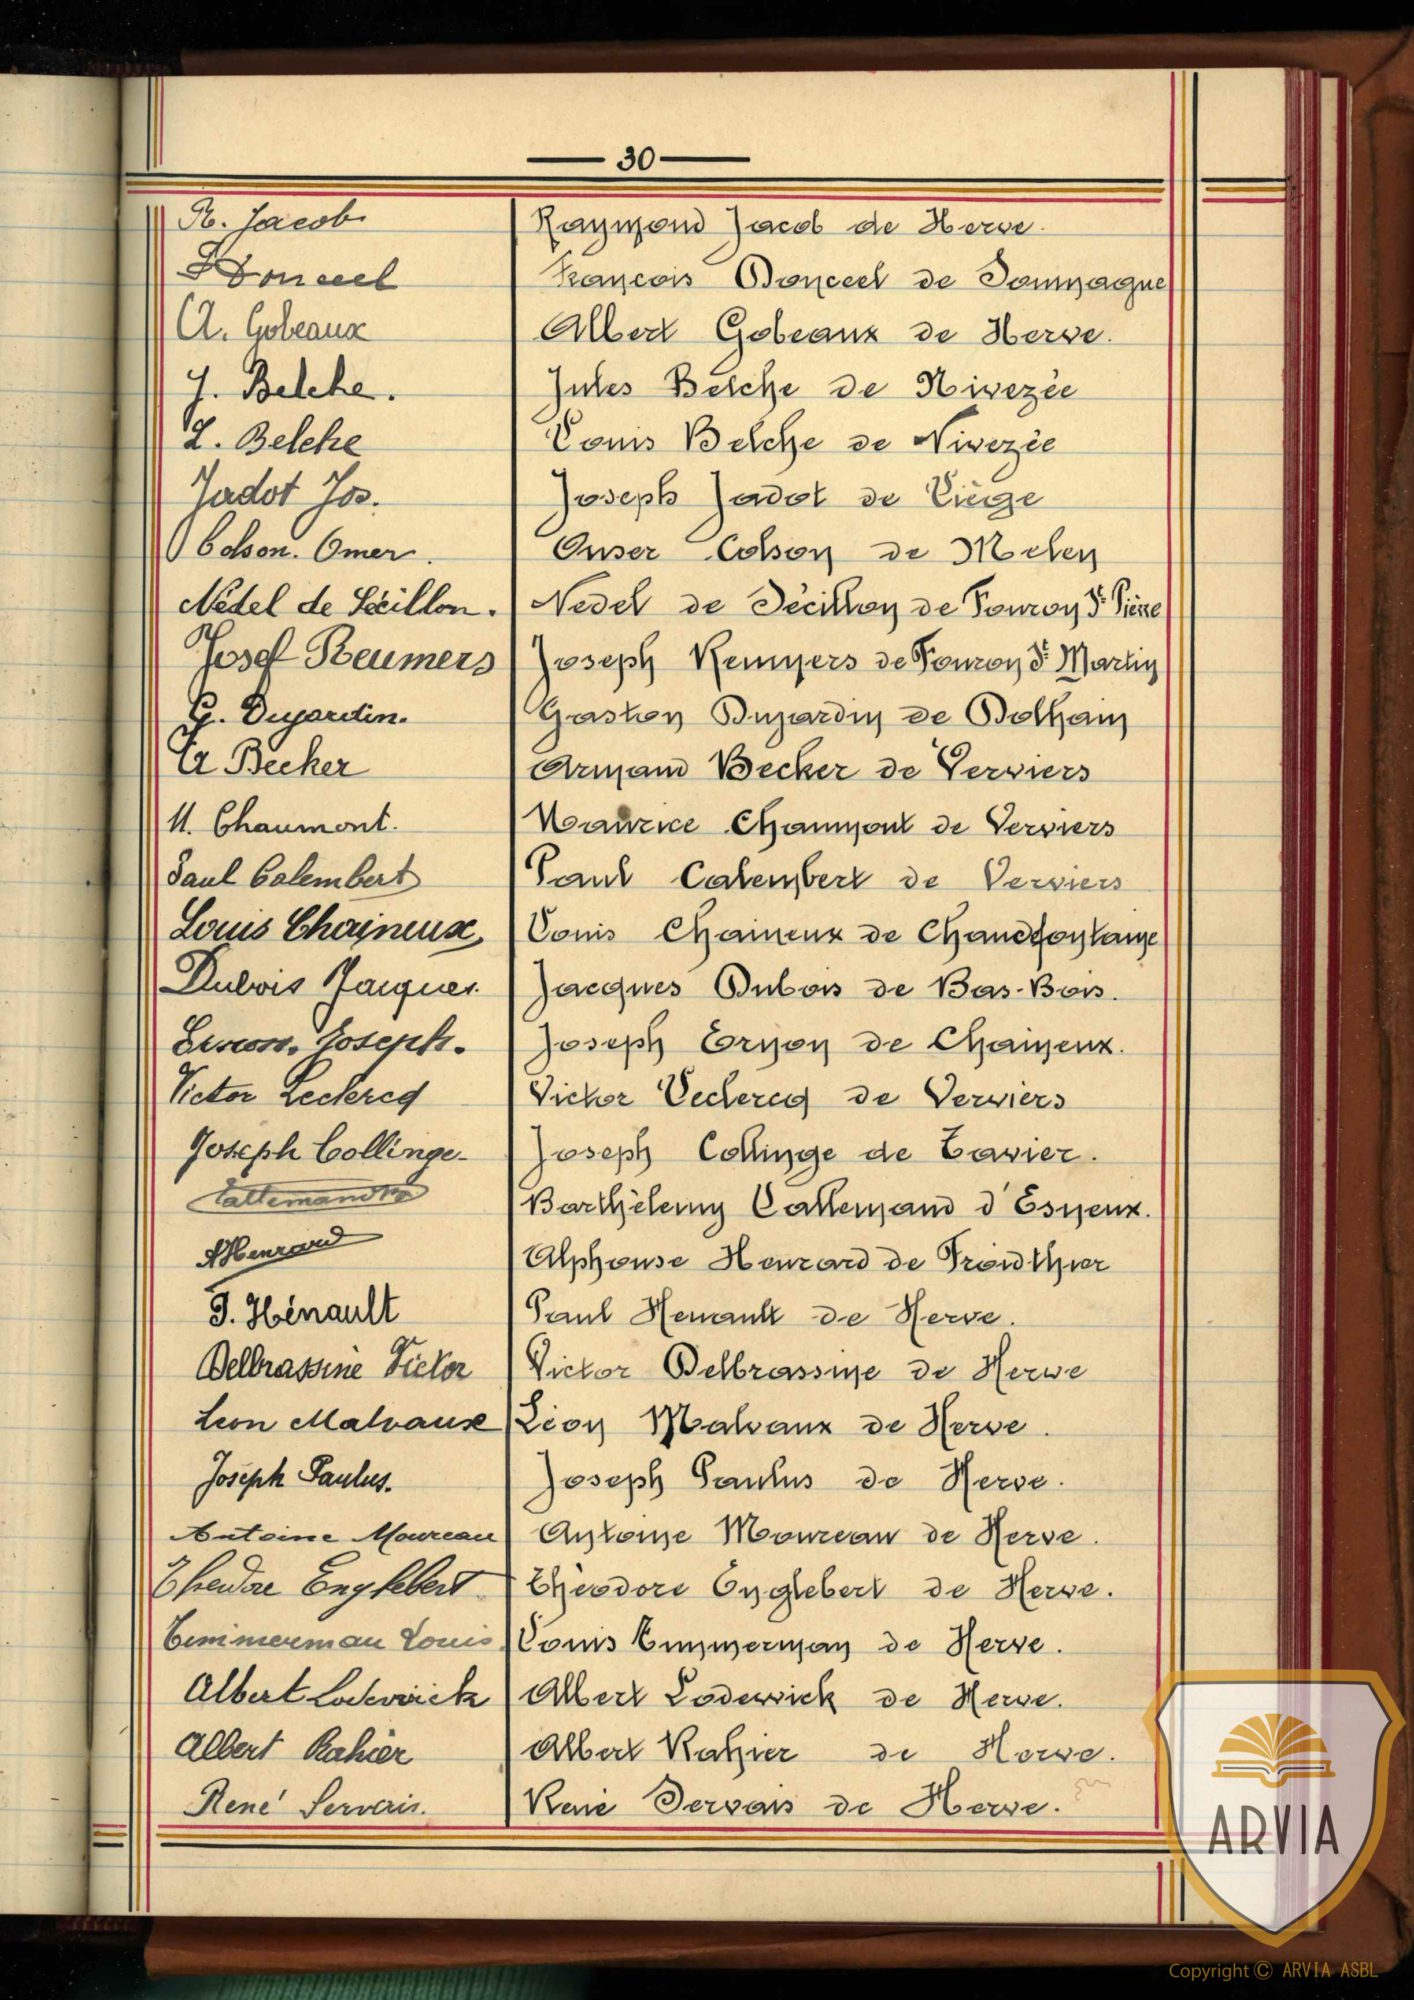 30
R. Jacob Raymond Jacob de Herve.
FDonceel François Donceel de Soumagne
A. Gobeaux Albert Gobeaux de Herve.
J. Belche. Jules Belche de Nivezée
L. Belche Louis Belche de Nivezée
Jadot Jos. Joseph Jadot de Liège
Colson. Omer. Omer Colson de Melen
Nédel de Sécillon. Nedel de Sécillon de Fouron St Pierre
Josef Reumers Joseph Remmers de Fouron St Martin
G. Dujardin. Gaston Dujardin de Dolhain
A Becker Armand Becker de Verviers
M. Chaumont. Maurice Chaumont de Verviers
Paul Calembert Paul Calembert de Verviers
Louis Chaineux Louis Chaineux de Chaudfontaine
Dubois Jacques Jacques Dubois de Bas-Bois.
Ernon. Joseph. Joseph Ernon de Chaineux.
Victor Leclercq Victor Leclercq de Verviers
Joseph Collinge Joseph Collinge de Tavier.
Lallemand Barthélemy Lallemand d'Esneux.
AHenrard Alphonse Henrard de Froidthier
P. Hénault Paul Henault de Herve.
Delbrassine Victor Victor Delbrassine de Herve
Léon Malvaux Léon Malvaux de Herve.
Joseph Paulus. Joseph Paulus de Herve.
Antoine Moureau Antoine Moureau de Herve.
Théodore Englebert Théodore Englebert de Herve.
Timmerman Louis Louis Timmerman de Herve.
Albert Lodewick Albert Lodewick de Herve.
Albert Rahier Albert Rahier de Herve.
René Servais. René Servais de Herve.
ARVIA
Copyright © ARVIA ASBL